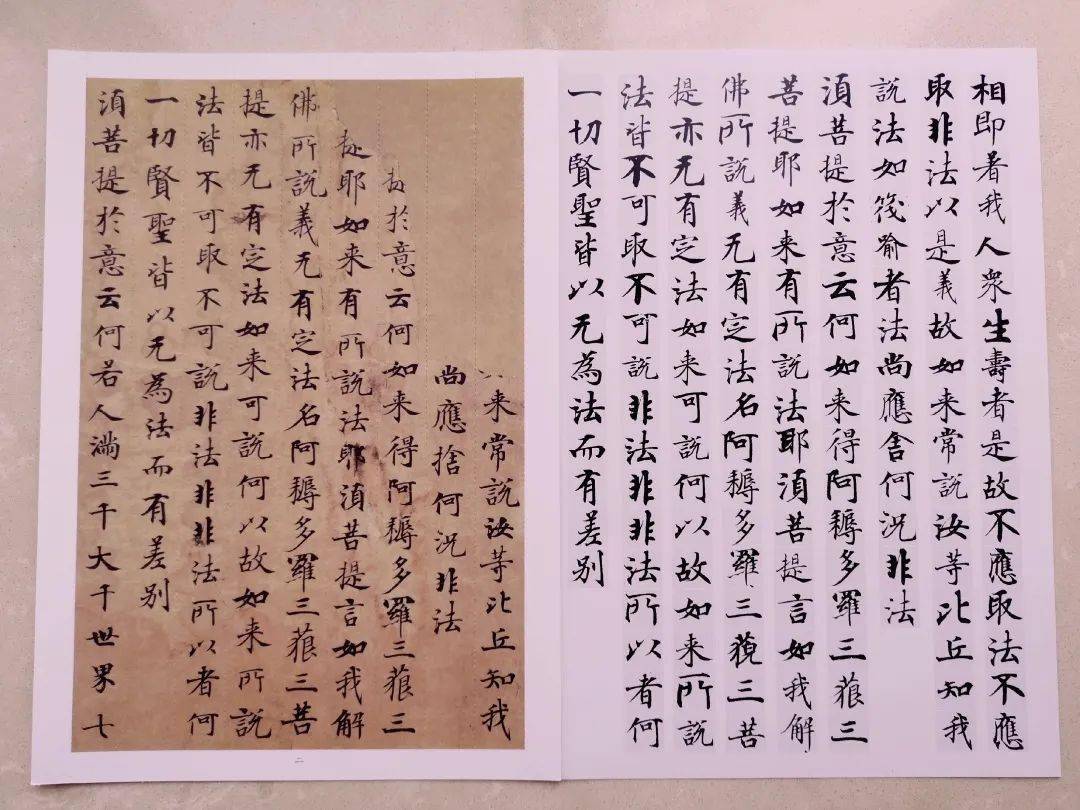 相即著我人衆生壽者是故不應取法不應
取非法以是義故如来常說汝等比丘知我
說法如筏喻者法尚應舍何况非法
須菩提於意云何如来得阿耨多羅三藐三
菩提耶如来有所說法耶須菩提言如我解
佛所說義无有定法名阿耨多羅三藐三菩
提亦无有定法如来可說何以故如来所說
法皆不可取不可說非法非非法所以者何
一切賢聖皆以无為法而有差别
来常說汝等比丘知我
尚應捨何况非法
於意云何如来得阿耨多羅三藐三
提耶如来有所說法耶須菩提言如我解
佛所說義无有定法名阿耨多羅三藐三菩
提亦无有定法如来可說何以故如来所說
法皆不可取不可說非法非非法所以者何
一切賢聖皆以无為法而有差别
須菩提於意云何若人滿三千大千世界七
二